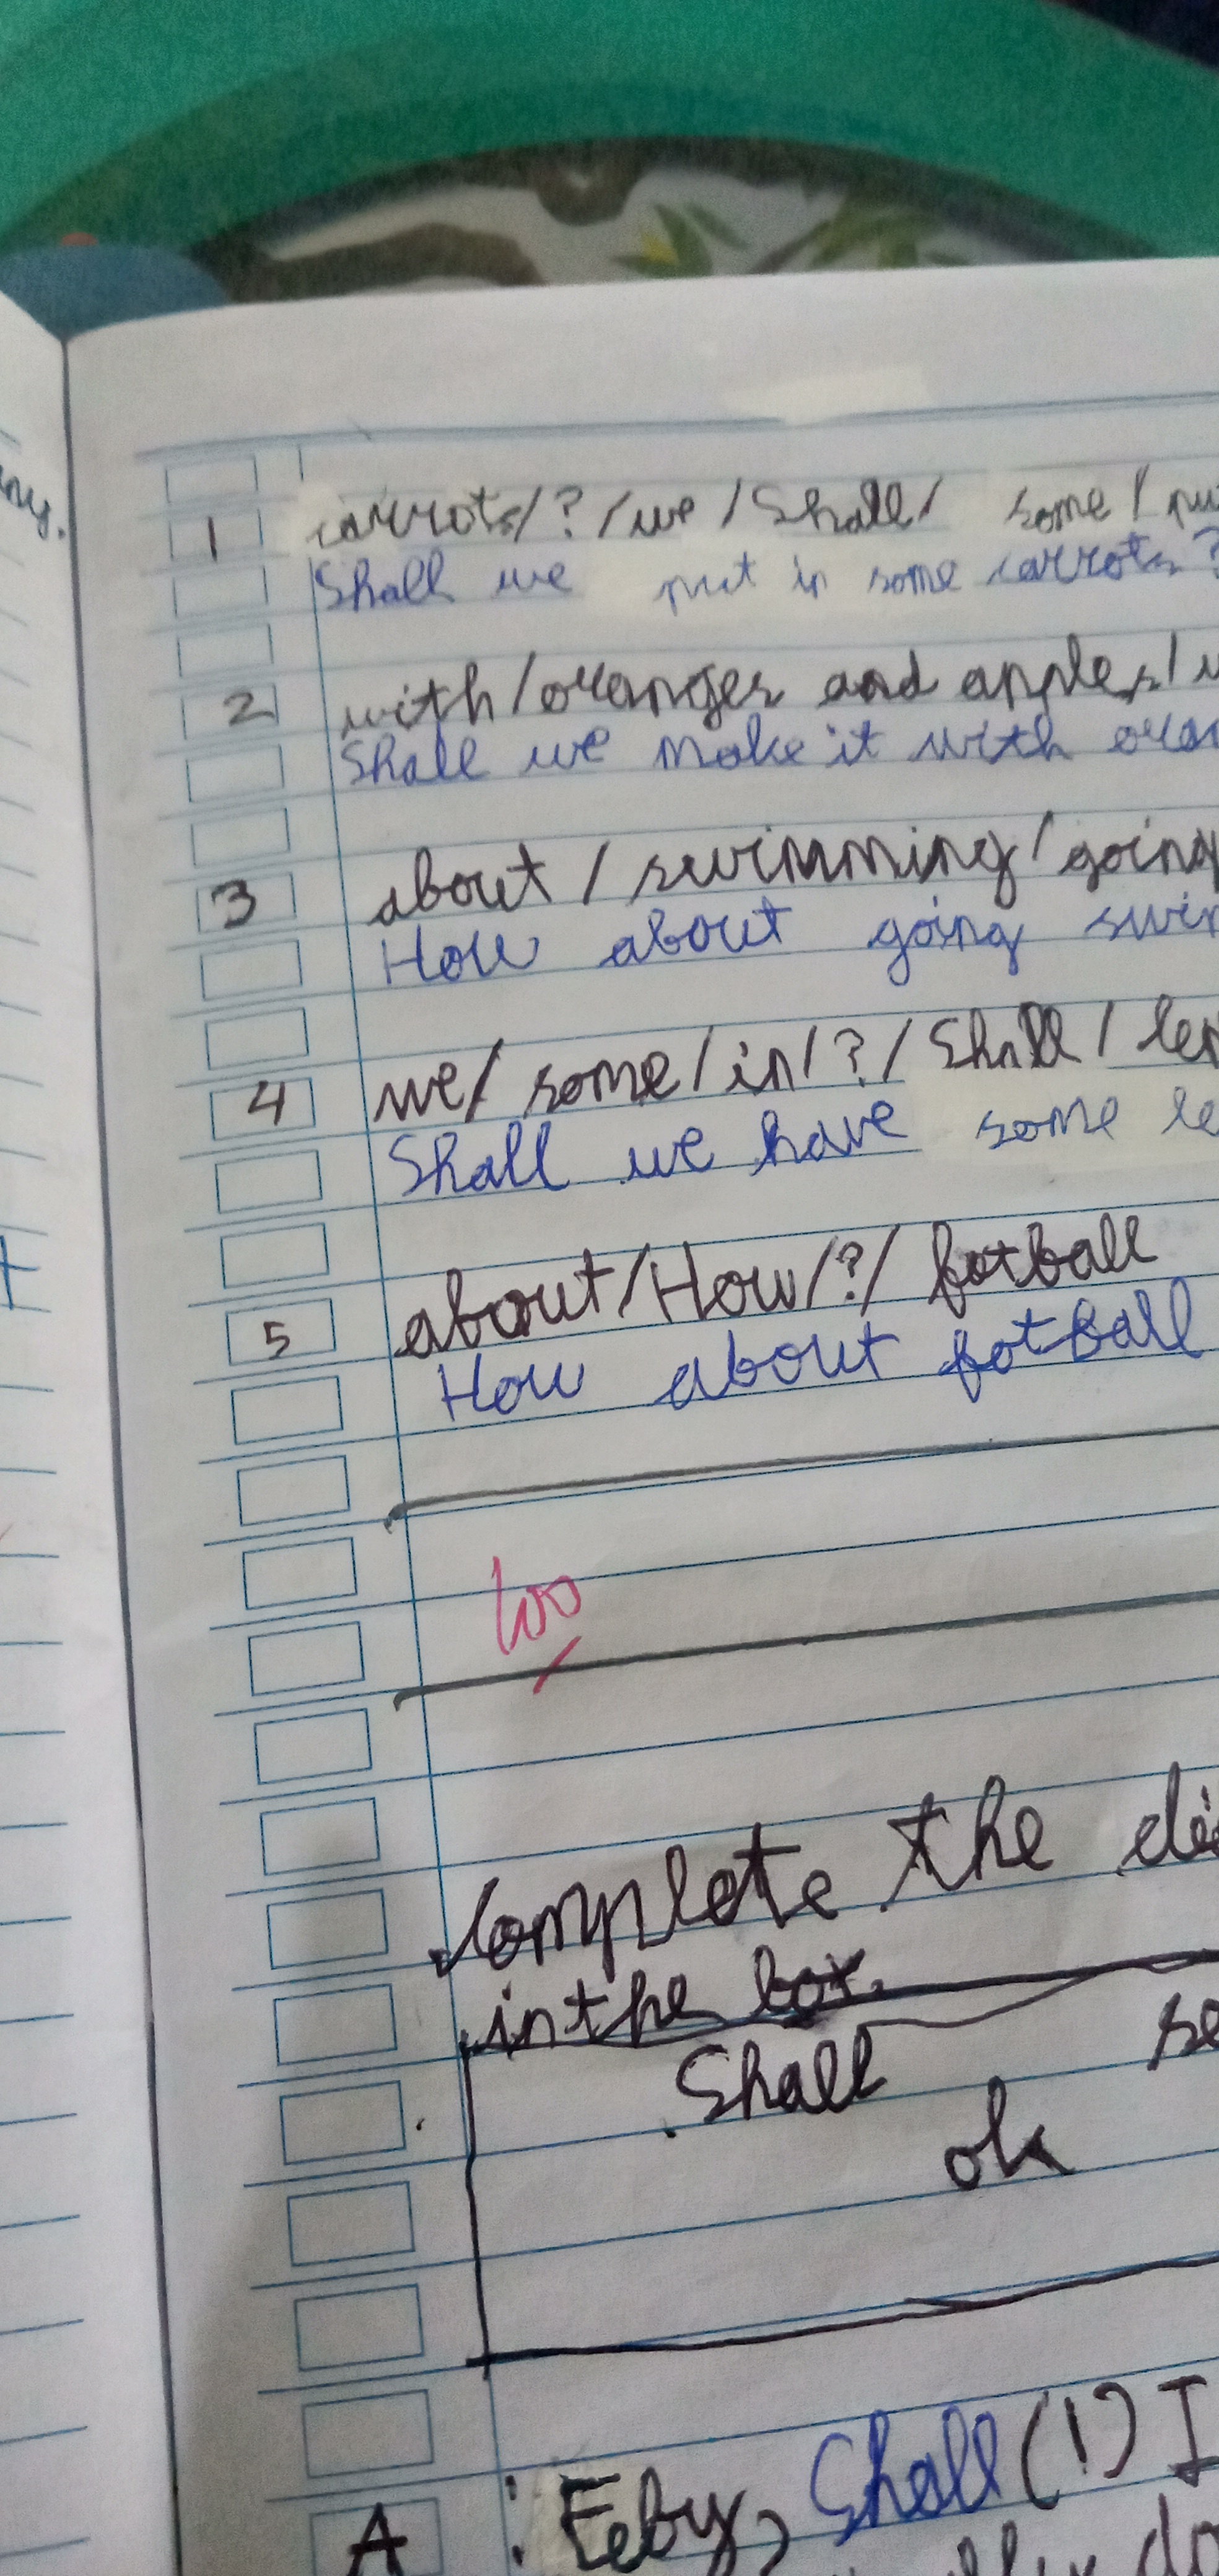 ny.
1 carrots/?/we/Shall/ some/pu
Shall we put in some carrots?
2 with/oranges and apples/
Shall we make it with oran
3 about/swimming/going
How about going swim
4 we/some/in/?/Shall/lem
Shall we have some le
5 about/How/?/fotball
How about fotball
100
Complete the di
in the box.
Shall se
ok
A : Eeby, Shall (1) I